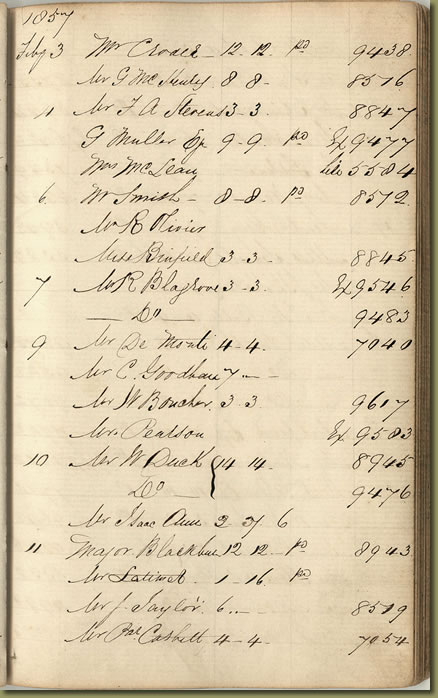 1857
Feby 3 Mr 12. 12. pd 9438
Mr G 8 8 - 8516
" Mr F A Stevens 3-3. 8847
G Muller 9-9. pd Ex 9477
Mrs McLean 5584
6. Mr Smith - 8-8. pd 8572
Mr R Olivier
Miss Binfield 3-3- 8845
7 Mr R Blagrove 3-3. Ex 9546
— Do — 9483
9 Mr De Monti 4-4. 7040
Mr C. 7 -—
Mr W Boucher. 3 3 9617
Mr. Pearson Ex 9583
10 Mr W Duck 14 14. 8945
Do — 9476
Mr Isaac 2 6
11 Major 12 12 - pd 8943
Mr Latimer . 1-16- pd
Mr J. Taylor. 6 .. — 8519
Mr 4-4- 7054